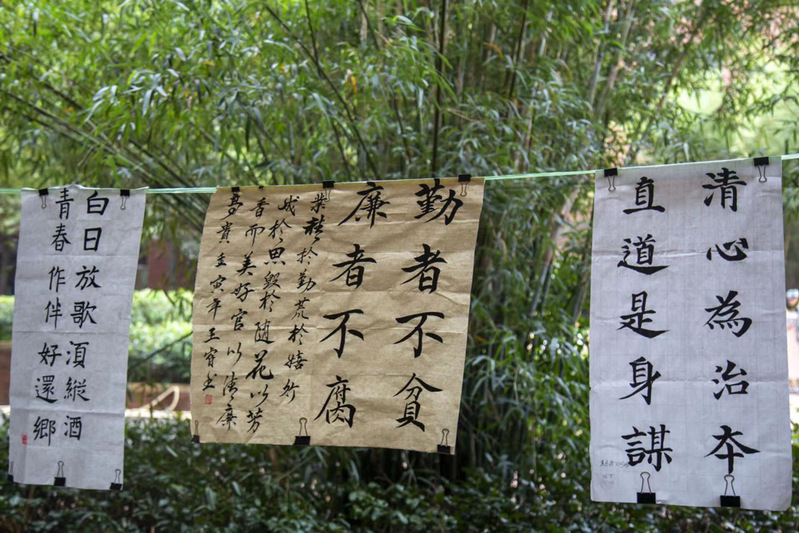 白日放歌湏縱酒
青春作伴好還鄉
勤者不貧
廉者不腐
業精於勤荒於嬉行
成於思毀於随花以芳
香而美好官以清廉
為貴 壬寅年 王
清心為治本
直道是身謀